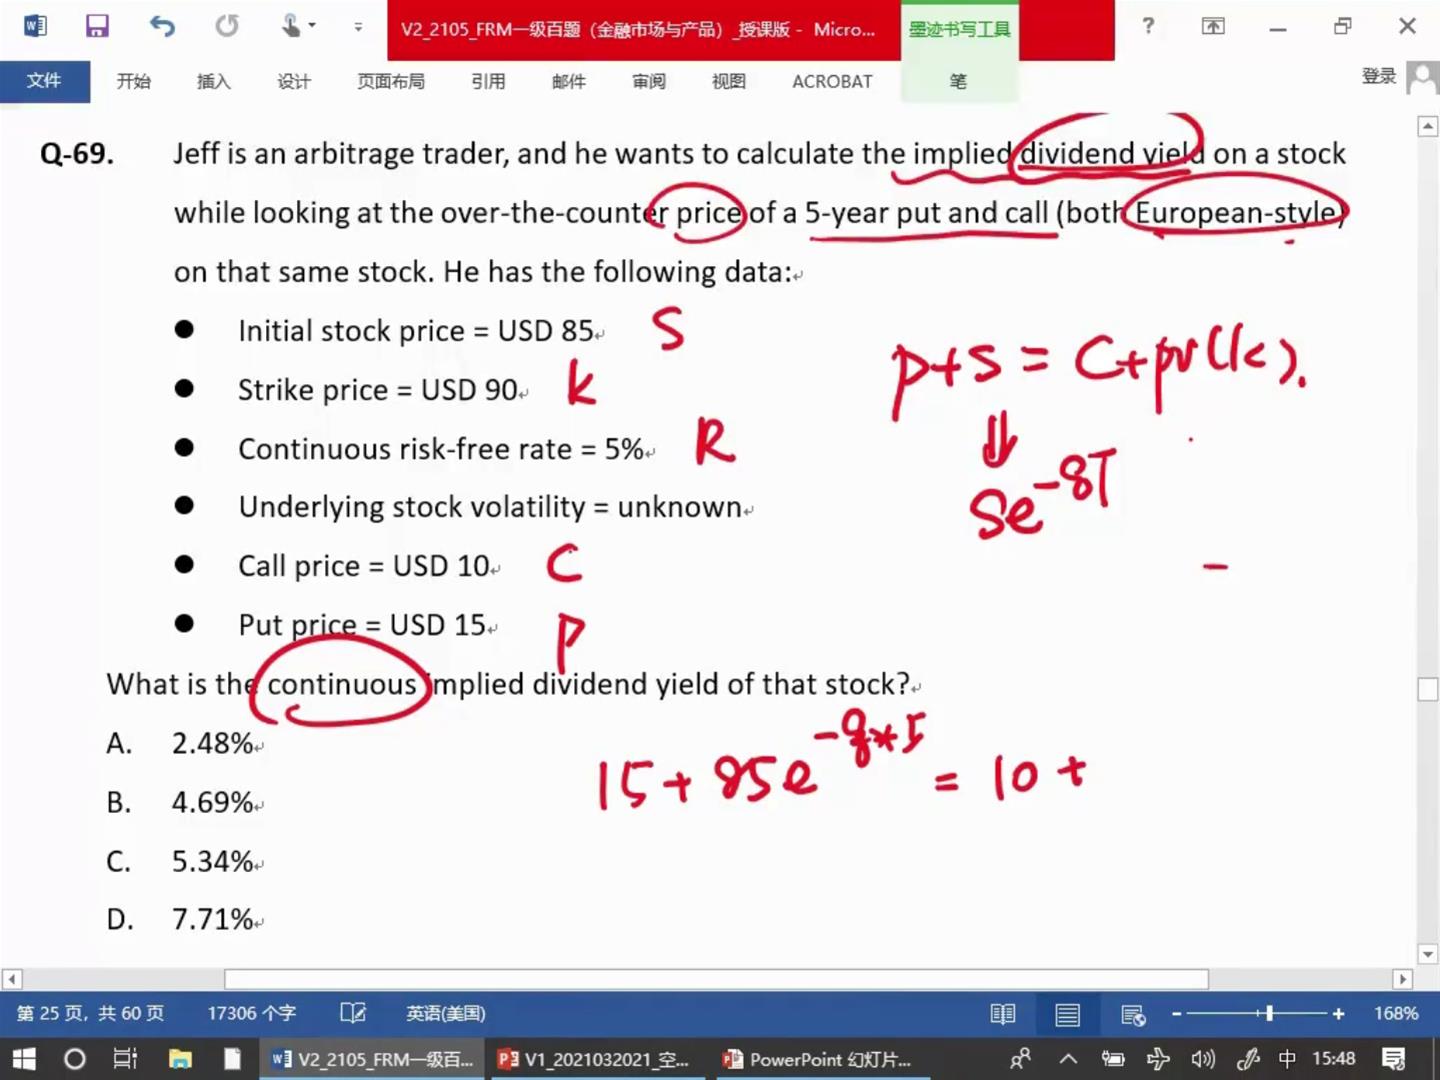 V2_2105_FRM一级百题（金融市场与产品）_授课版 - Micro...
墨迹书写工具
文件 开始 插入 设计 页面布局 引用 邮件 审阅 视图 ACROBAT 笔 登录
Q-69. Jeff is an arbitrage trader, and he wants to calculate the implied dividend yield on a stock
while looking at the over-the-counter price of a 5-year put and call (both European-style)
on that same stock. He has the following data:
● Initial stock price = USD 85 S
● Strike price = USD 90 K
p+s = C+pv(k).
● Continuous risk-free rate = 5% R
● Underlying stock volatility = unknown
Se^-qT
● Call price = USD 10 C
● Put price = USD 15 P
What is the continuous implied dividend yield of that stock?
A. 2.48%
15+85e^-q*5 = 10+
B. 4.69%
C. 5.34%
D. 7.71%
第 25 页，共 60 页 17306 个字 英语(美国) 168%
V2_2105_FRM一级百... V1_2021032021_空... PowerPoint 幻灯片... 中 15:48